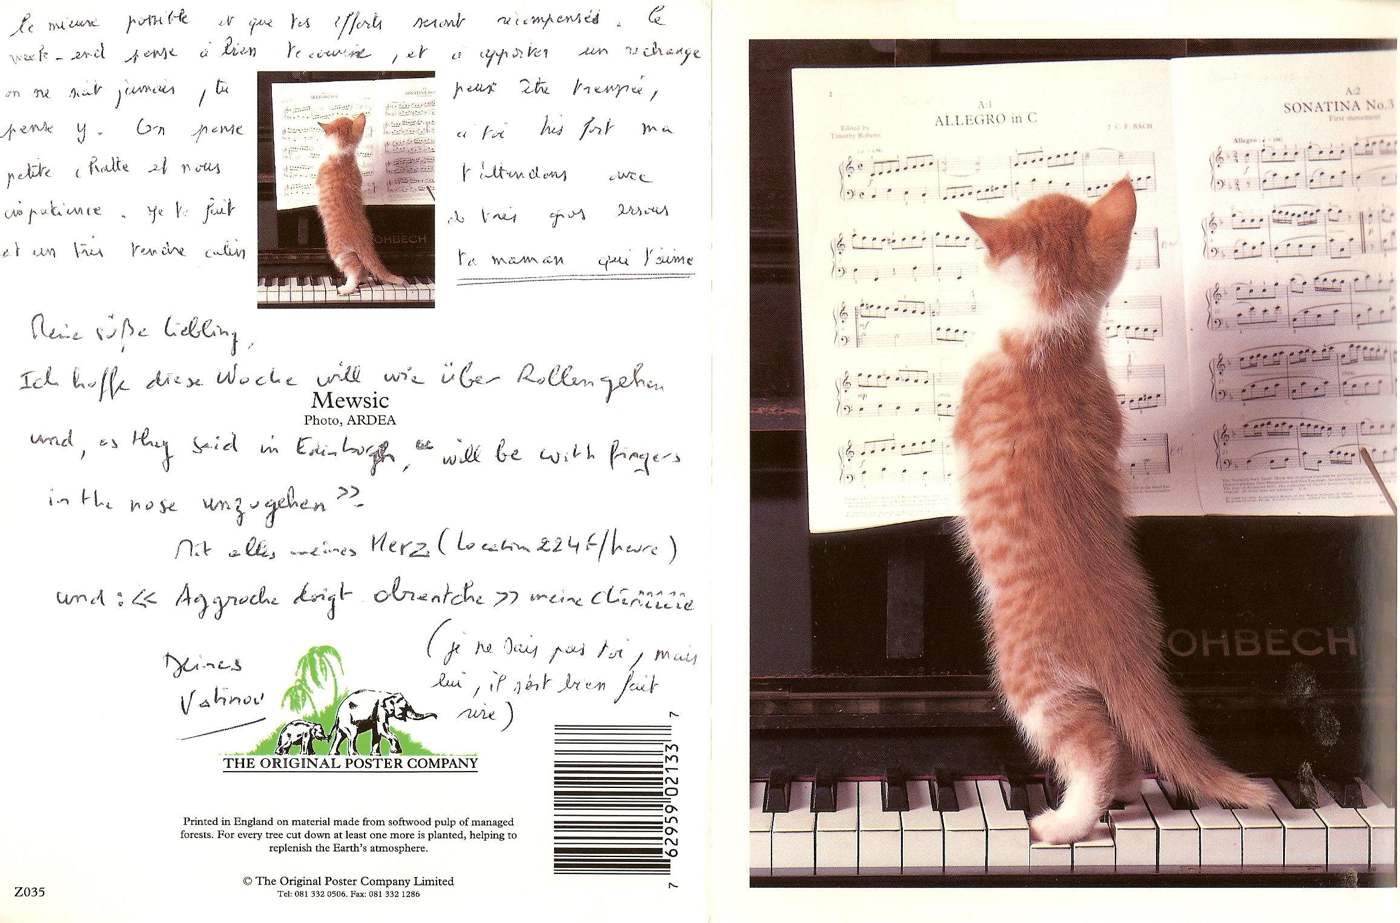 le mieux possible et que tes efforts seront récompensés. Ce
week-end pense à bien te couvrir, et à apporter un rechange
on ne sait jamais, tu peux être trempée,
pense y. On pense à toi très fort ma
petite chatte et nous t'attendons avec
impatience. Je te fait de très gros
et un très tendre calin ta maman qui t'aime
Meine süße Liebling,
Ich hoffe diese Woche will wie über Rollen gehen
Mewsic
Photo, ARDEA
und, as they said in Edinburgh, "will be with fingers
in the nose unzugehen".
Mit alles meines Herz (location 224F/heure)
und : « doigt » meine
(je ne sais pas toi, mais
lui, il s'est bien fait
rire)
Deines
THE ORIGINAL POSTER COMPANY
Printed in England on material made from softwood pulp of managed
forests. For every tree cut down at least one more is planted, helping to
replenish the Earth's atmosphere.
© The Original Poster Company Limited
Tel: 081 332 0506. Fax: 081 332 1286
Z035
7 62959 02133 7
A:1
ALLEGRO in C
Edited by
Timothy Roberts
J. C. F. BACH
A:2
SONATINA No.3
First movement
Allegro
OHBECH